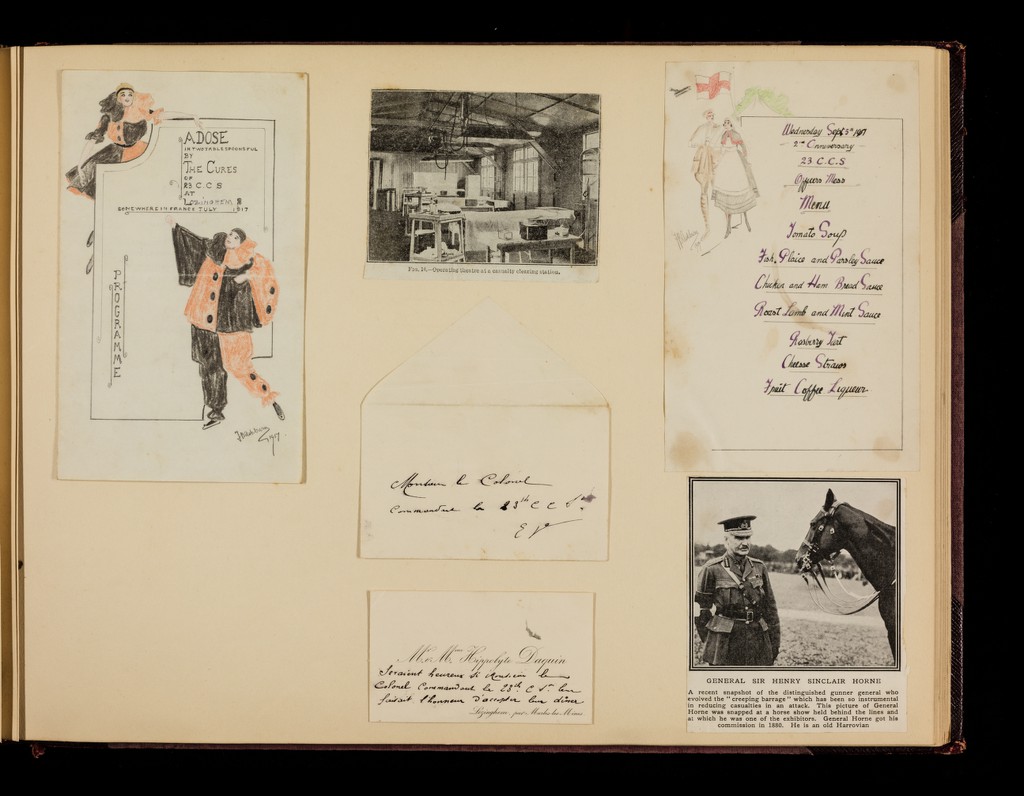 A DOSE
IN TWO TABLESPOONSFUL
BY
THE CURES
OF
23 C.C.S
AT
LOZINGHEM
SOMEWHERE IN FRANCE JULY 1917
PROGRAMME
1917
FIG. 14.—Operating theatre at a casualty clearing station.
Wednesday Sept 5th 1917
2nd Anniversary
23 C.C.S
Officers Mess
Menu
Tomato Soup
Fish, Plaice and Parsley Sauce
Chicken and Ham Bread Sauce
Roast Lamb and Mint Sauce
Rasberry Tart
Cheese Straws
Fruit Coffee Liqueur
Monsieur le Colonel
Commandant la 23th C C St.
E V
Mr. et Mme Hippolyte Daquin
Seraient heureux si Monsieur le
Colonel Commandant le 23th C St leur
faisait l'honneur d'accepter leur dîner
Lozinghem, par
GENERAL SIR HENRY SINCLAIR HORNE
A recent snapshot of the distinguished gunner general who
evolved the "creeping barrage" which has been so instrumental
in reducing casualties in an attack. This picture of General
Horne was snapped at a horse show held behind the lines and
at which he was one of the exhibitors. General Horne got his
commission in 1880. He is an old Harrovian